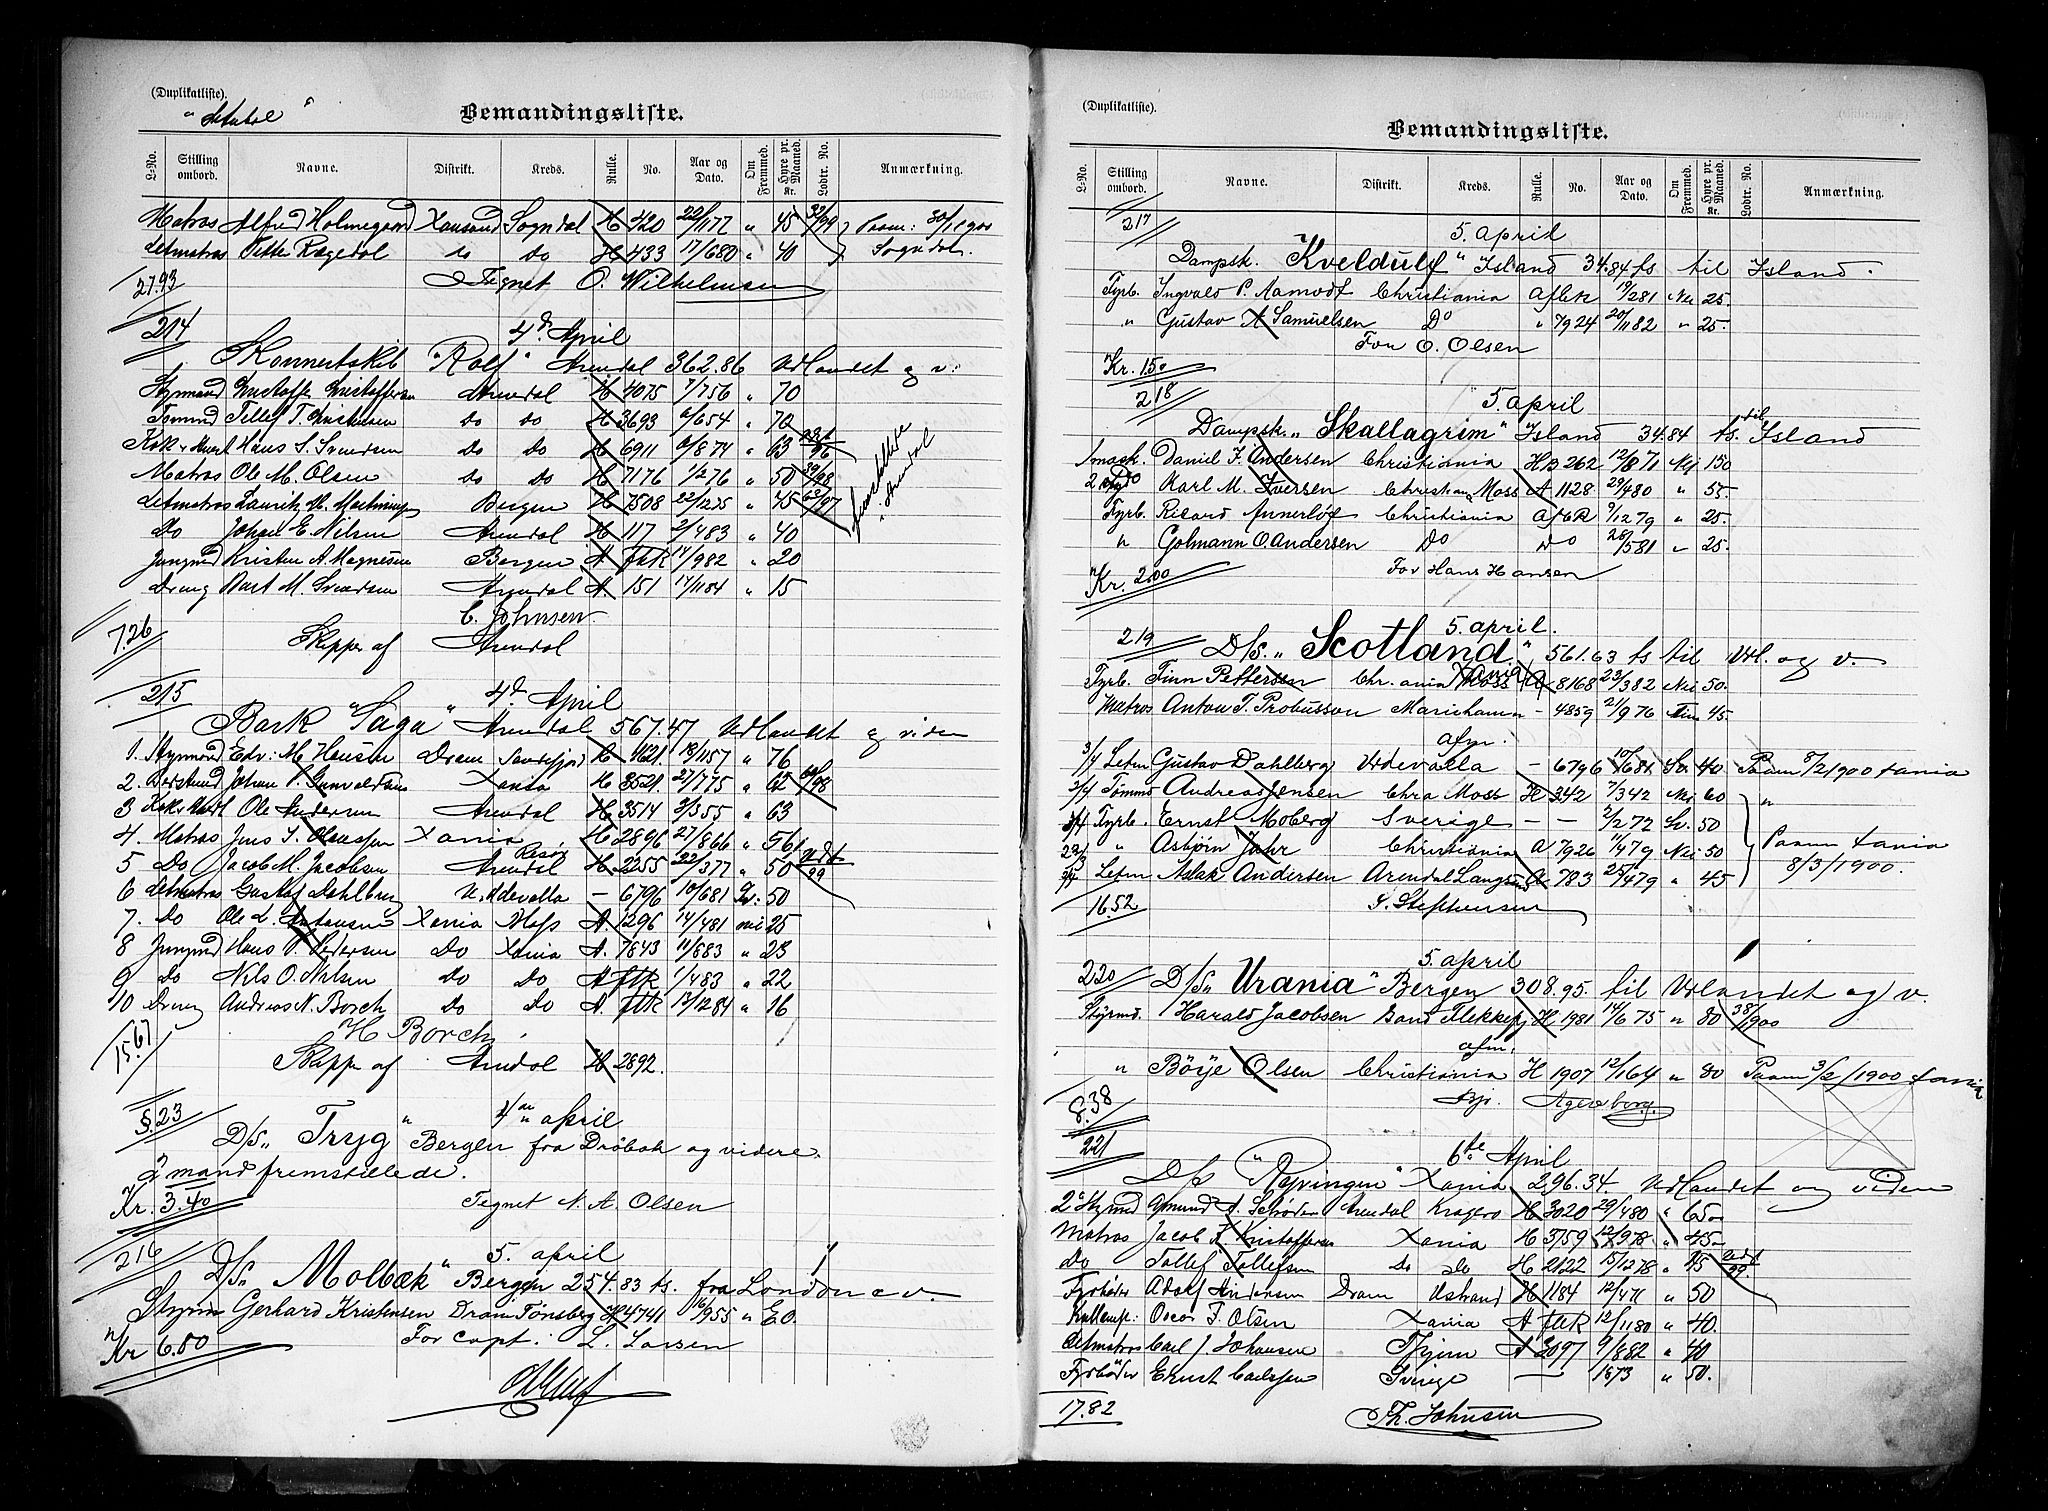 (Duplikatliste).
Bemandingsliste.
L-No. Stilling ombord. Navne. Distrikt. Kreds. Rulle. No. Aar og Dato. Om Fremmed. Hyre pr. Maaned. Kr. Lodtr. No. Anmærkning.
Matros Alfred Holmegaard Xansand Sogndal H 420 22/1177 " 45 Paam: 30/1 1900
Letmatros Rægedal do Do H 433 17/680 " 40 Sogndal.
27.93 Tegnet O. Wilhelmsen
214 4de April
Skonnertskib "Rolf" Arendal 362.86 Udlandet og v:
Styrmand Kristoffer Kristoffersen Arendal H 4075 7/756 " 70
Tømmd Tellef T. Do Do H 3693 6/654 " 70
Hans S. Svendsen Do Do H 6911 6/874 " 63
Matros Ole M. Olsen Do Do H 7176 1/276 " 50 39/98
Letmatros Lauritz M. Bergen H 7508 22/1275 " 45 62/97
Do Johan E. Nilsen Arendal H 117 2/483 " 40
Jungmd Kristen A. Magnesen Bergen A ftk 14/982 " 20
Dreng M. Svendsen Arendal A. 151 17/1184 " 15
C. Johnsen
7.26 Skipper af Arendal
215 4de April
Bark "Saga" Arendal 567.47 Udlandet og viden
1. Styrmand Edv: M. Hansen Dram Sandefjord H 1621 18/1157 " 76
2. Johan P. Xania H 3521 27/775 " 62
3 Ole Andersen Arendal H 3514 3/355 " 63
4. Matros Jens J. Claussen Xania H 2896 27/866 " 56
5 Do Jacob M. Jacobsen Arendal Risør H 2255 22/377 " 50
6 Letmatros Gustaf Dahlberg Uddevalla — 6796 10/681 Sv: 50
7. Do Ole L. Xania Moss A. 1296 14/481 nei 25
8 Jungmd Hans P. Pedersen Do Xania A. 7843 11/883 " 23
9 Do Nils O. Nilsen Do Do A ftk 1/483 " 22
10 Dreng Andreas N. Borch Do Do A. ftk 13/1284 " 16
H Borch
15.67 Skipper af Arendal H 2892.
§. 23 4de april
D/S. "Tryg" Bergen fra Drøbak og videre.
2 mand fremstillede.
Kr. 3.40 Tegnet N. A. Olsen
216 5. april
D/S. "Molbæk" Bergen 254.83 ts. fra London e v.
Styrm Gerhard Kristensen Dram Tønsberg H 4741 16/955 " 80.
Kr 6.80 For capt. L. Larsen
(Duplikatliste).
Bemandingsliste.
L-No. Stilling ombord. Navne. Distrikt. Kreds. Rulle. No. Aar og Dato. Om Fremmed. Hyre pr. Maaned. Kr. Lodtr. No. Anmærkning.
217 5. april
Dampsk. "Kveldulf" Island 34.84 ts til Island.
Fyrb. Ingvald P. Aamodt Christiania A ftk 19/281 Nei 25.
" Gustav A Samuelsen Do " 7924 20/1182 " 25.
For O. Olsen
Kr. 1.50
218 5. april
Dampsk. "Skallagrim" Island 34.84 ts. til Island
1 mask. Daniel J. Andersen Christiania H B 262 12/871 Nei 150
2 Karl M. Iversen Christian Moss A 1128 29/480 " 55.
Fyrb. Ricard Annerløf Christiania A ftk 9/1279 " 25.
" Golmann O. Andersen Do Do 28/581 " 25.
For Hans Hansen
Kr. 2.00
219 5. april.
D/S. "Scotland" 561.63 ts til Udl. og v.
Fyrb. Finn Pettersen Chr.ania Moss A 8168 23/382 Nei 50.
Matros Anton T. Probusson Mariehamn - 4859 21/976 Fin 45.
afm.
3/4 Letm Gustav Dahlberg Uddevalla - 6796 10/681 Sv. 40 Paam 8/2 1900 Xania
3/4 Tømmd Andreas Jensen Chra Moss H 342 7/342 Nei 60 "
3/4 Fyrb. Ernst Moberg Sverige - - 2/272 Sv. 50
" Asbjörn Jahr Christiania A 7926 11/479 Nei 50 Paam Xania
Letm Aslak Andersen Arendal A 783 25/479 " 45 8/3/1900.
16.52 S. Stephensen
220 5. april
D/S. "Urania" Bergen 308.95. til Udlandet og v.
Styrmd. Harald Jacobsen Sand Flekkefj H 1981 14/675 " 80 38/1900
afm.
" Börje Olsen Christiania H 1907 12/164 " 80 Paam 3/2/1900 Xania
8.38
221 6te April
D/S "Røvingen" Xania 296.34. Udlandet og viden
2 Styrmd A. Schrøder Arendal Kragerø H 3020 29/480 " 65
Matros Jacob F. Kristoffersen Xania H 3759 12/978 " 45
Do Tollef Tollefsen Do Do H 2122 15/1278 " 45
Fyrbøder Adolf Andersen Dram H 1184 12/471 " 50
Kullemp: Oscar J. Olsen Xania A ftk 12/1180 " 40.
Letmatros Carl J. Johansen Thjem A 2097 9/882 " 40
Fyrbøder Ernst Carlssen Sverige — 1873 " 50.
17.82 Th. Johnsen